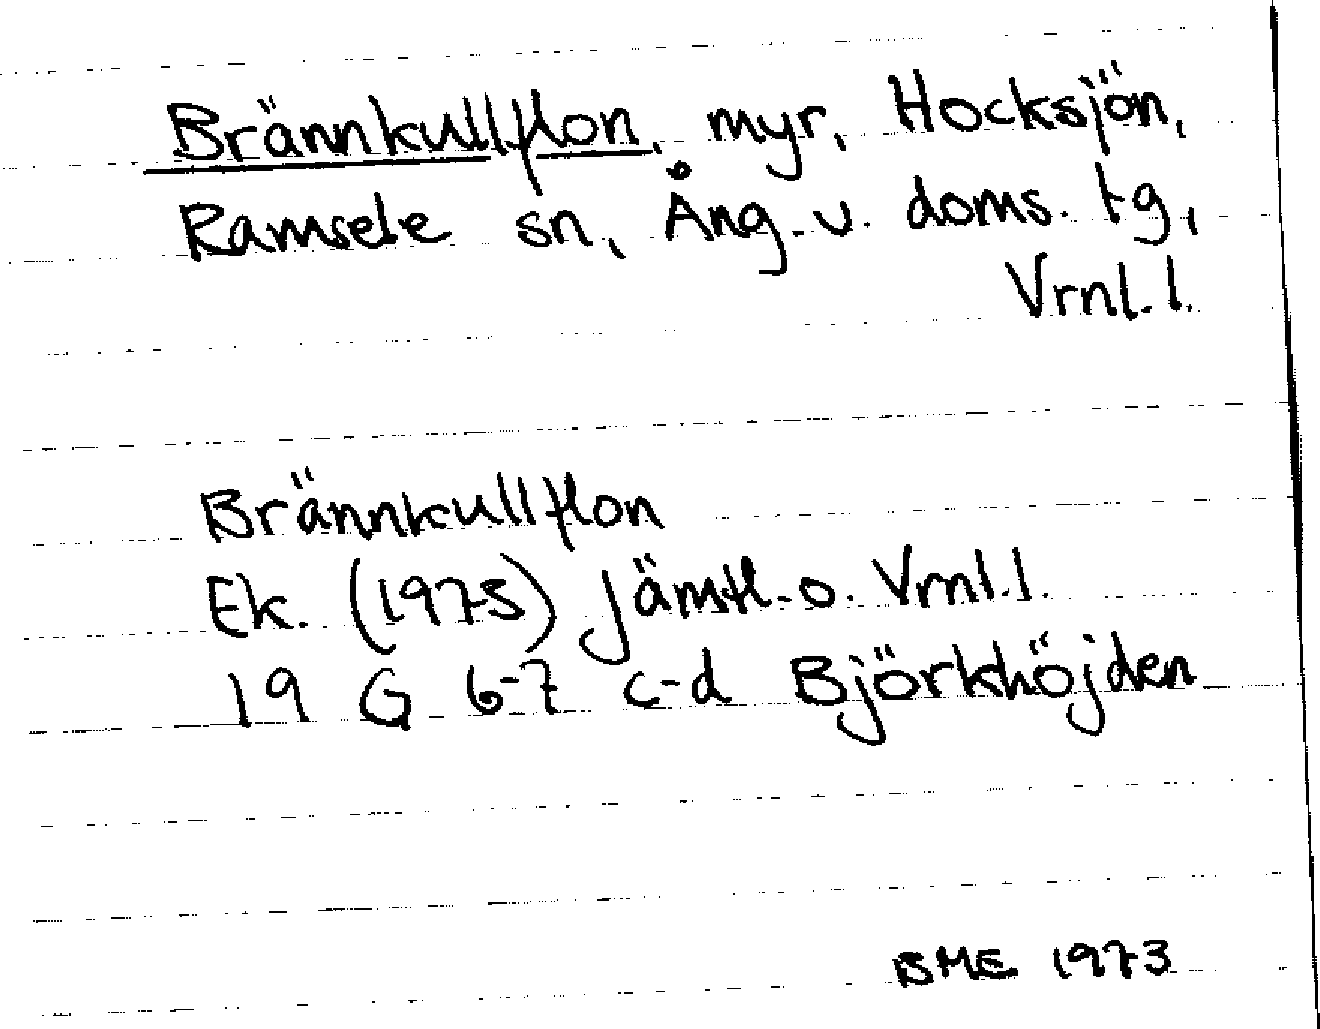 Brännkullflon, myr, Hocksjön,
Ramsele sn, Ång. v. doms. tg,
Vrnl. l.
Brännkullflon
Ek. (1975) Jämtl. o. Vrnl. l.
19 G 6-7 c-d Björkhöjden
BME 1973